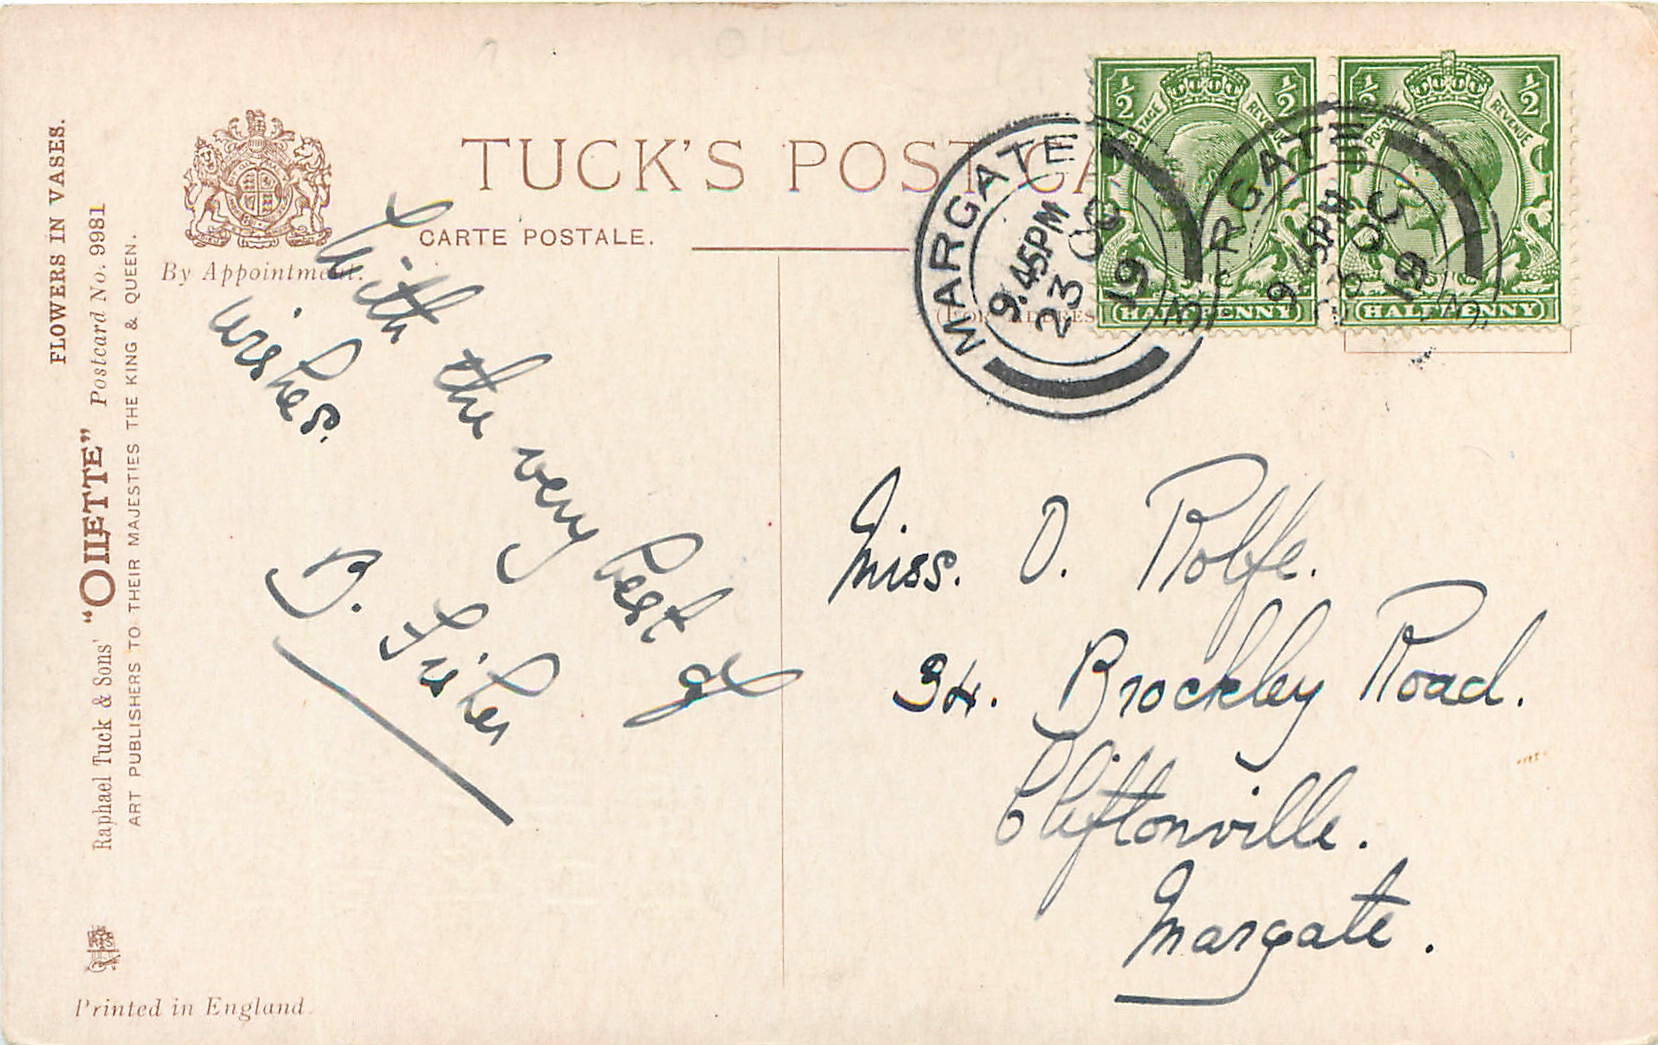 FLOWERS IN VASES.
Raphael Tuck & Sons' "OILETTE" Postcard No. 9981
ART PUBLISHERS TO THEIR MAJESTIES THE KING & QUEEN.
Printed in England
By Appointment.
TUCK'S POST CA
CARTE POSTALE.
With the very best of
wishes.
B. Fisher
½ ½
POSTAGE REVENUE
HALFPENNY
½ ½
POSTAGE REVENUE
HALFPENNY
MARGATE
9.45PM
23 OC
19
ARGATE
9.45PM
23 OC
19
Miss. O. Rolfe.
34. Brockley Road.
Cliftonville.
Margate.